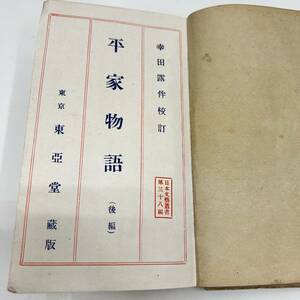 幸田露伴校訂
平家物語
（後編）
東京 東亞堂藏版
日本文藝叢書
第三十八編